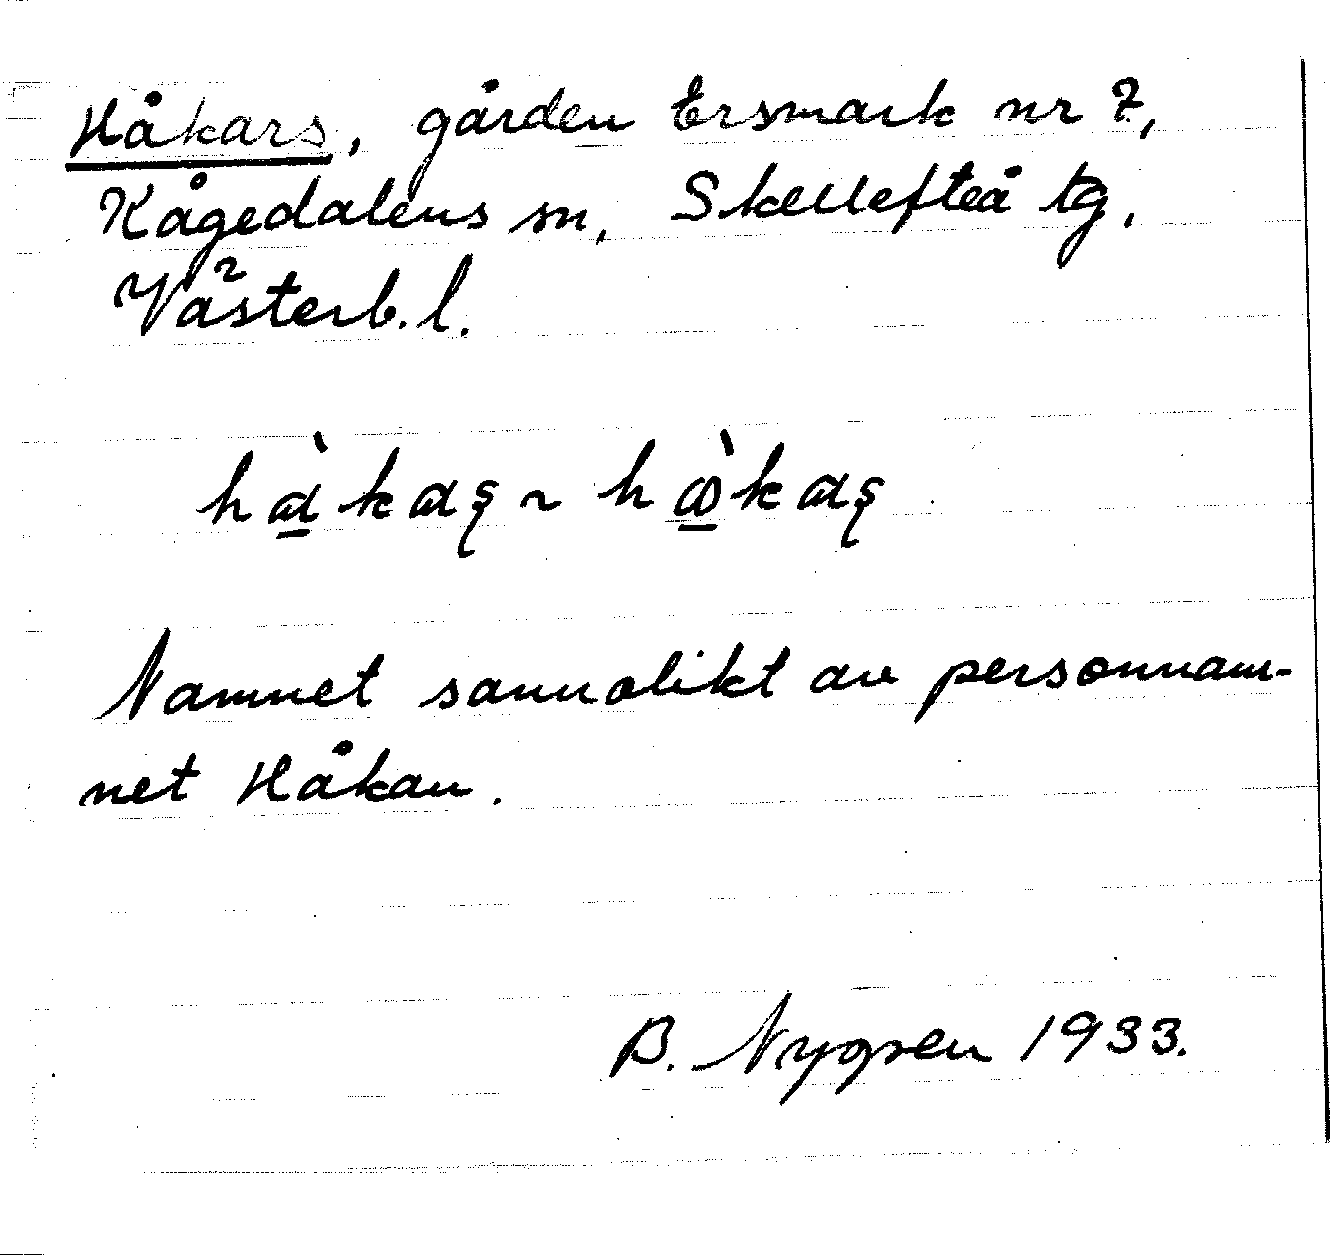 Håkars, gården Ersmark nr 7,
Kågedalens sn, Skellefteå tg,
Västerb. l.
hɑ̠̀kɑʂ ~ hὼ̠kɑʂ
Namnet sannolikt av personnam-
net Håkan.
B. Nygren 1933.